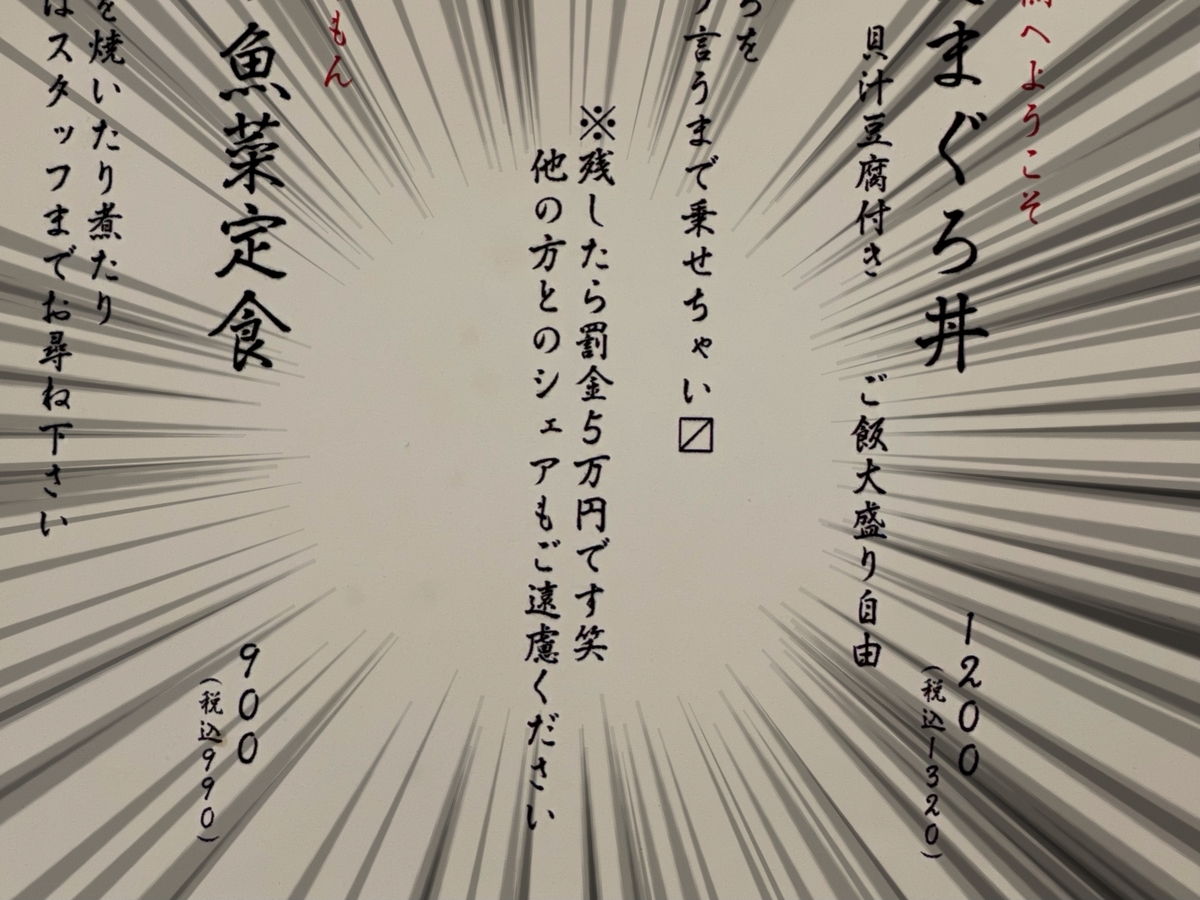 へようこそ
まぐろ丼
1200
(税込1320)
貝汁豆腐付き ご飯大盛り自由
を
言うまで乗せちゃい〼
※残したら罰金5万円です笑
他の方とのシェアもご遠慮ください
もん
魚菜定食
900
(税込990)
を焼いたり煮たり
はスタッフまでお尋ね下さい